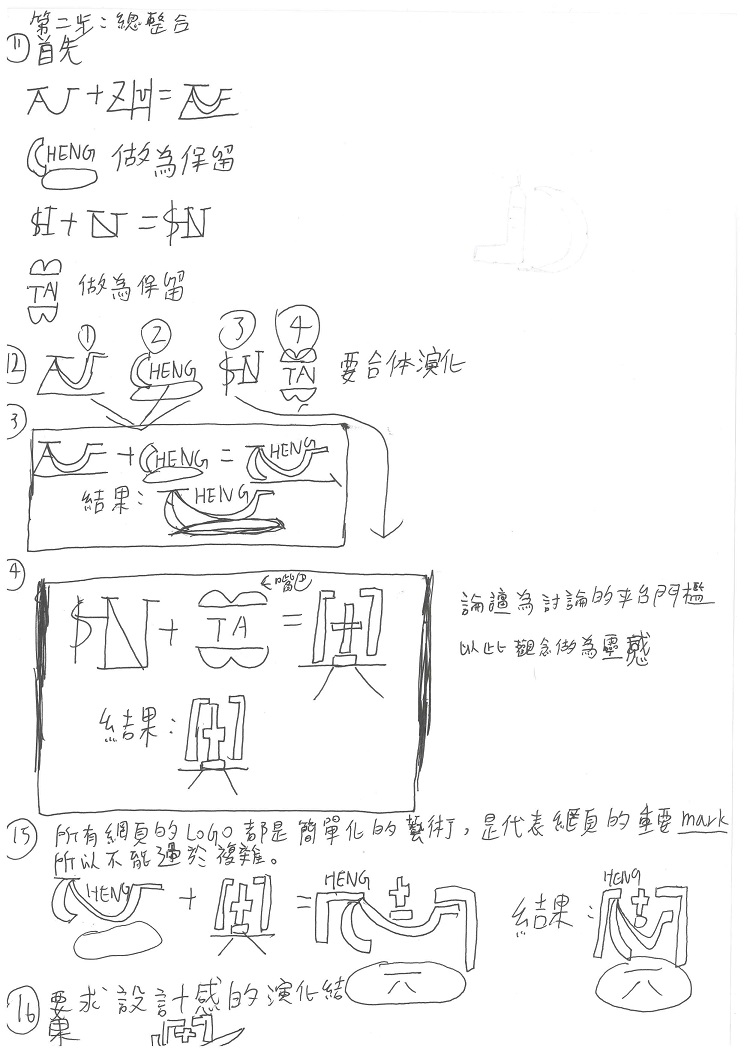 第二步：總整合
11 首先
AU + ZM = AUE
CHENG 做為保留
$I + N = $N
TAI 做為保留
① ② ③ ④
12 CHENG $N TAI 要合体演化
13
+ CHENG = HENG
結果： HENG
14
←嘴巴
$N + TA =
論壇為討論的平台門檻
以此觀念做為靈感
結果：
15 所有網頁的LOGO都是簡單化的藝術，是代表網頁的重要mark
所以不能過於複雜。
HENG + = HENG 結果： HENG
16 要求設計感的演化結
果